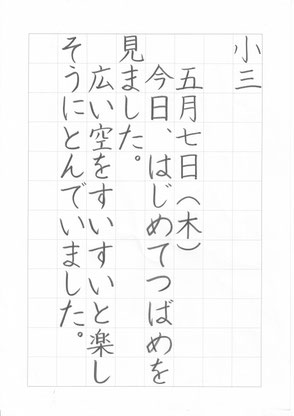 小三
五月七日(木)
今日、はじめてつばめを
見ました。
広い空をすいすいと楽し
そうにとんでいました。